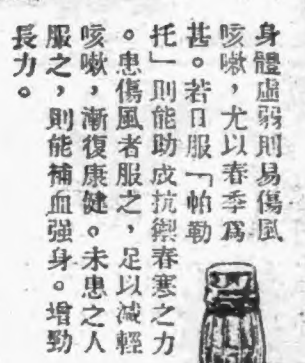 身體虛弱則易傷風
咳嗽，尤以春季爲
甚。若日服「帕勒
托」則能助成抗禦春寒之力
。患傷風者服之，足以減輕
咳嗽，漸復康健。未患之人
服之，則能補血强身。增勁
長力。